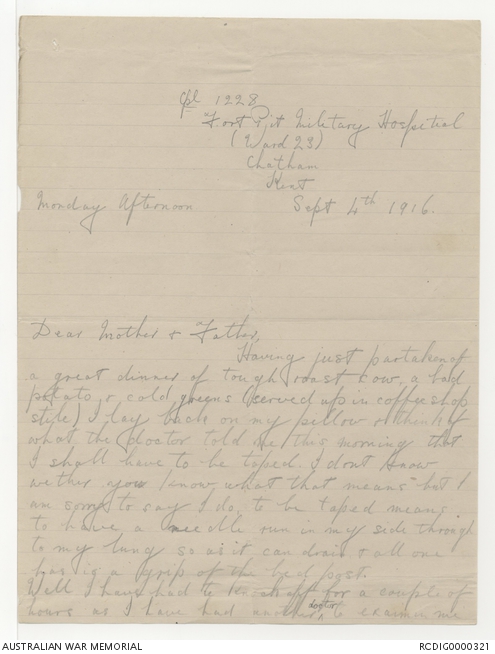 Cpl 1228
Fort Pit Military Hospetial
(Ward 23)
Chatham
Kent
Monday Afternoon Sept 4th 1916.
Dear Mother & Father,
Having just partaken of
a great dinner of tough roast cow, a bad
potato & cold greens (served up in coffee shop
style) I lay back on my pillow & think of
what the doctor told me this morning that
I shall have to be taped. I dont know
wether you know what that means but I
am sorry to say I do, to be taped means
to have a needle run in my side through
to my lung so as it can drain & all one
has is a grip of the bed post.
Well I have had to knock off for a couple of
hours as I have had another doctor to examin me
AUSTRALIAN WAR MEMORIAL RCDIG0000321